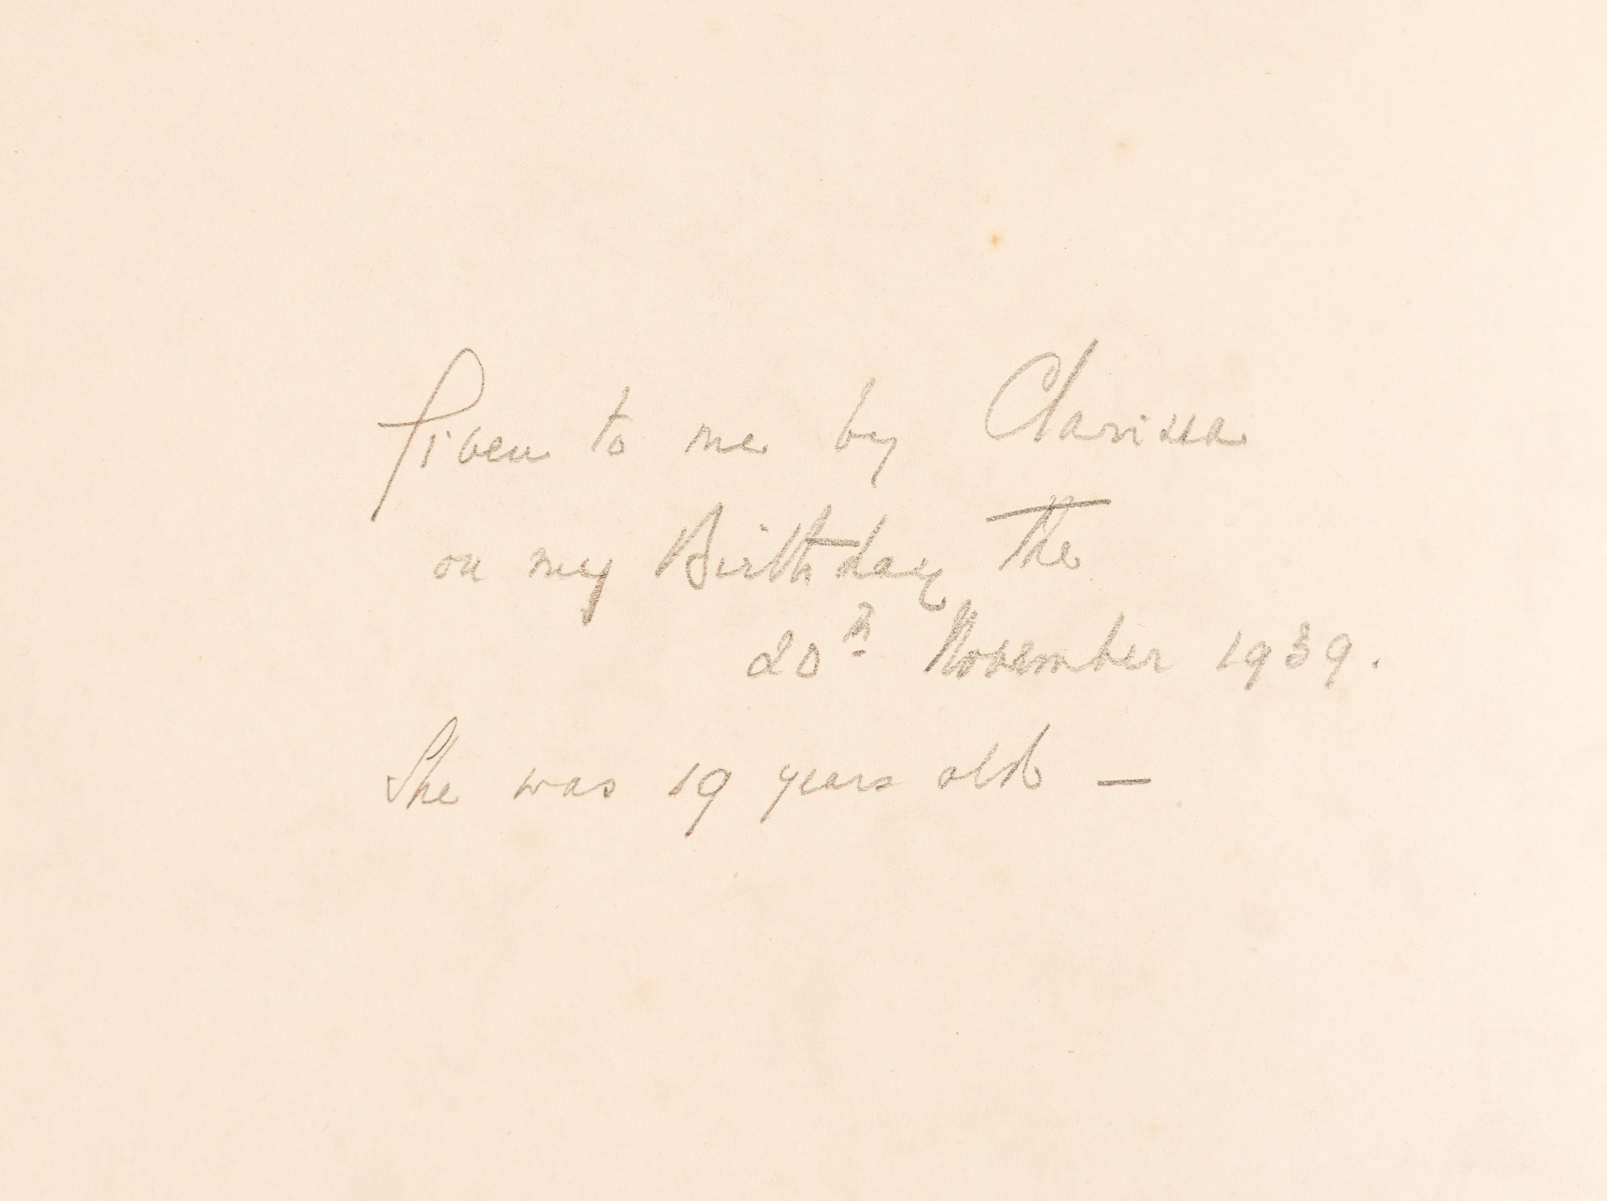 Given to me by Clarissa
on my Birthday the
20th November 1939.
She was 19 years old —